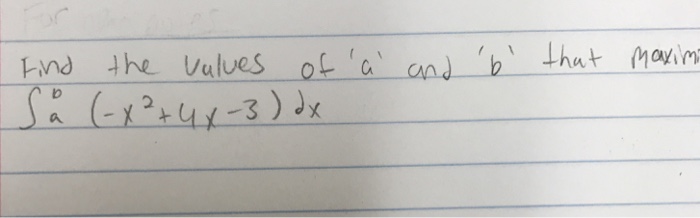 Find the values of 'a' and 'b' that maximi
∫ₐᵇ (-x²+4x-3) dx